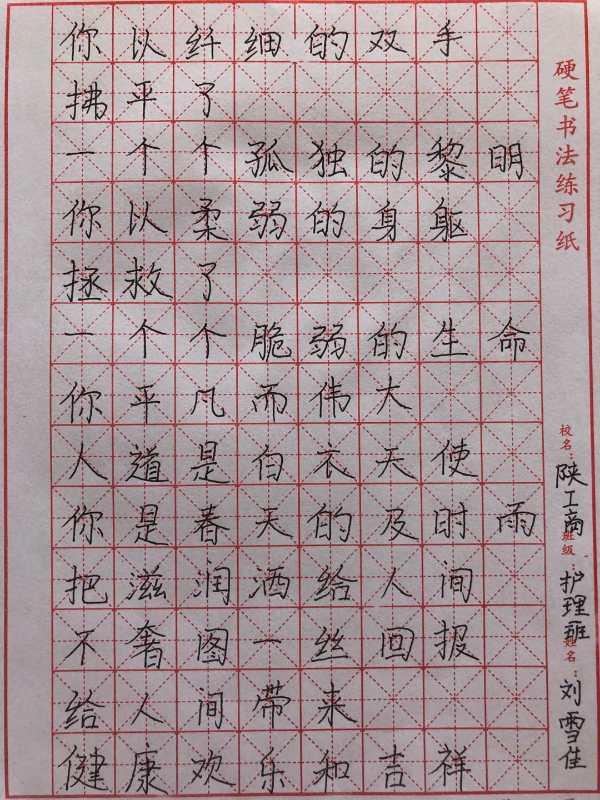 你以纤细的双手
拂平了
一个个孤独的黎明
你以柔弱的身躯
拯救了
一个个脆弱的生命
你平凡而伟大
人道是白衣天使
你是春天的及时雨
把滋润洒给人间
不奢图一丝回报
给人间带来
健康欢乐和吉祥
硬笔书法练习纸
校名：陕工商
班级：护理班
姓名：刘雪佳